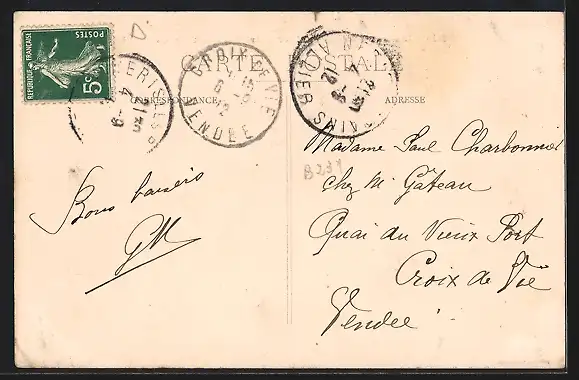 REPUBLIQUE FRANÇAISE
POSTES
5c
CARTE POSTALE
CORRESPONDANCE
ADRESSE
CROIX DE VIE
VENDÉE
Bons baisers
GM
B231
Madame Paul Charbonnier
chez M. Gâteau
Quai du Vieux Port
Croix de Vie
Vendée